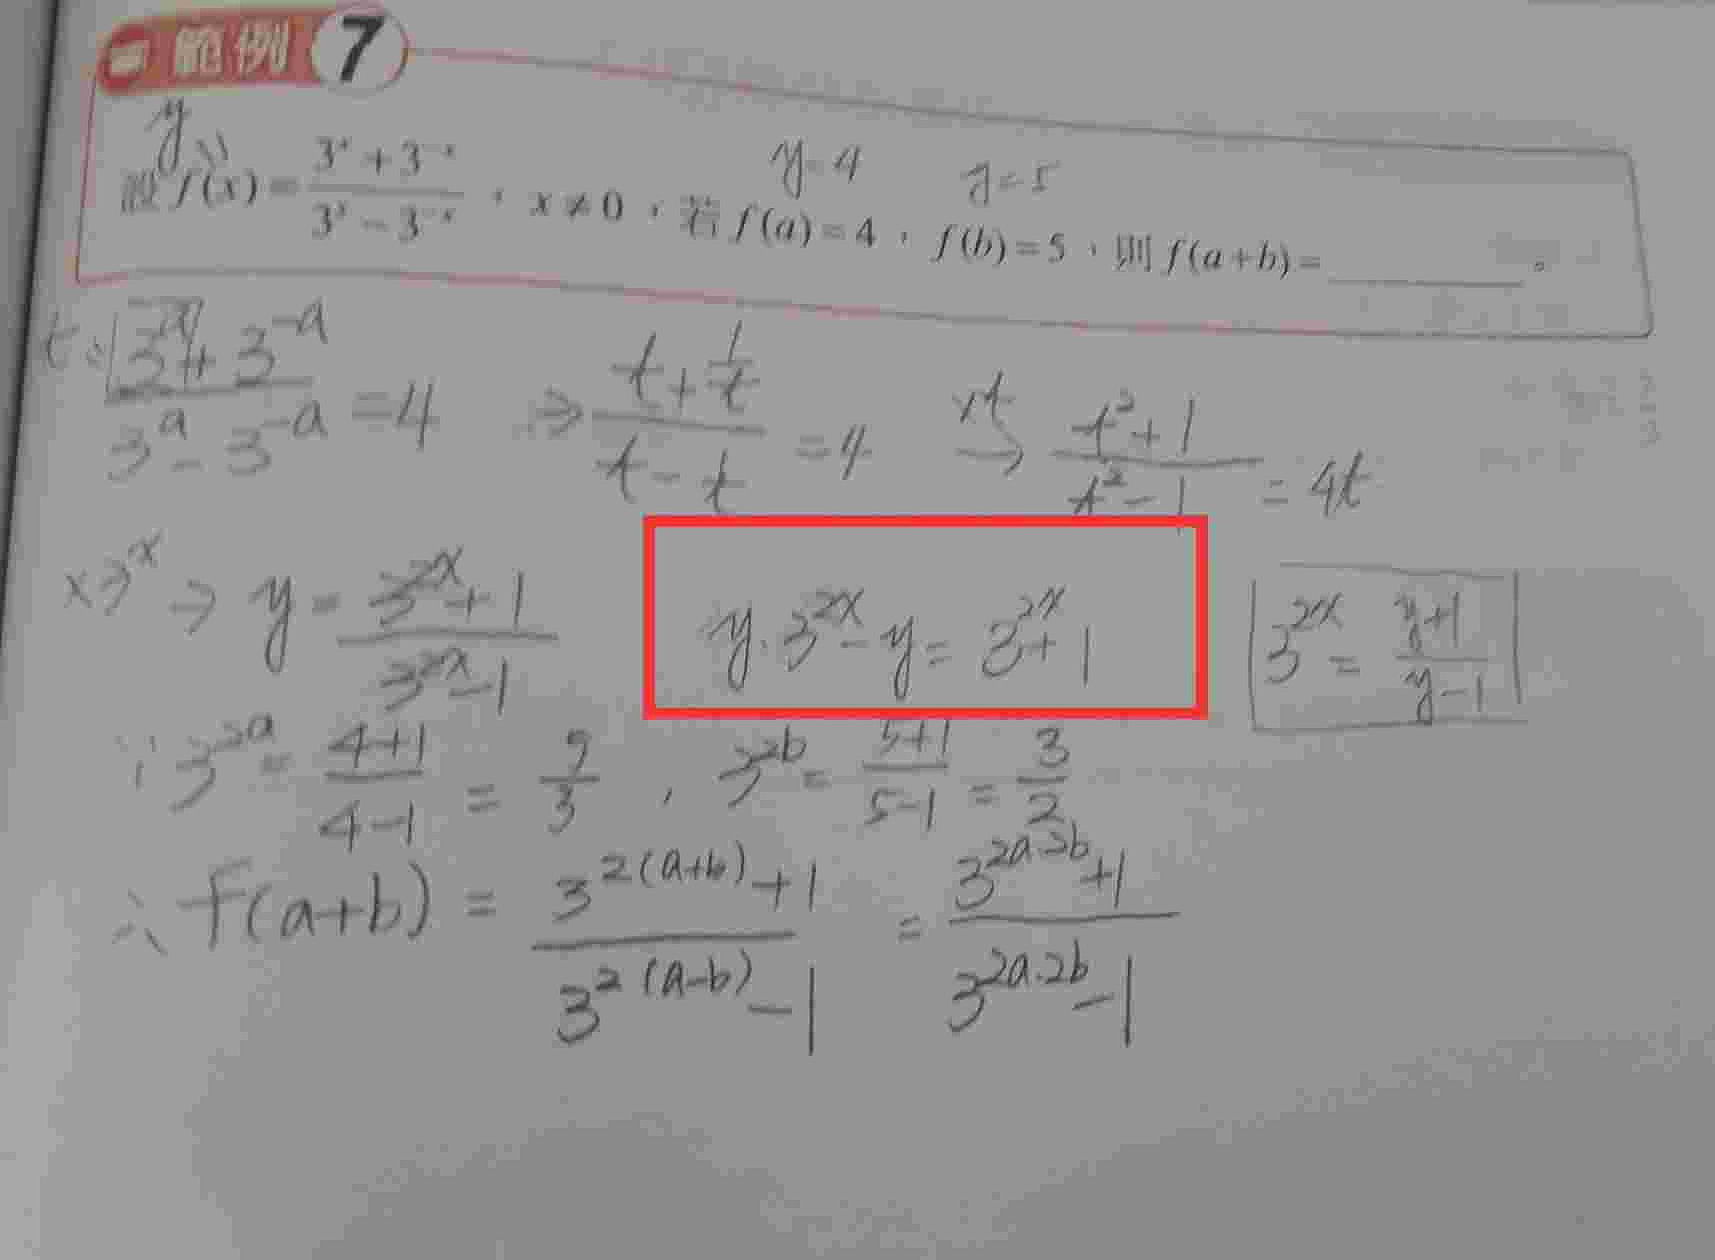 範例 7
y
設 f(x) = (3^x + 3^-x) / (3^x - 3^-x) , x ≠ 0 , 若 f(a) = 4 , f(b) = 5 , 則 f(a+b) = ______ 。
y=4 y=5
t = (3^a + 3^-a) / (3^a - 3^-a) = 4 ⇒ (t + 1/t) / (t - t) = 4 ×t → (t^2 + 1) / (t^2 - 1) = 4t
×3^x → y = (3^2x + 1) / (3^2x - 1) y·3^2x - y = 3^2x + 1 3^2x = (y+1) / (y-1)
∵ 3^2a = (4+1) / (4-1) = 5/3 , 3^2b = (5+1) / (5-1) = 3/2
∴ f(a+b) = (3^2(a+b) + 1) / (3^2(a-b) - 1) = (3^2a·2b + 1) / (3^2a·2b - 1)